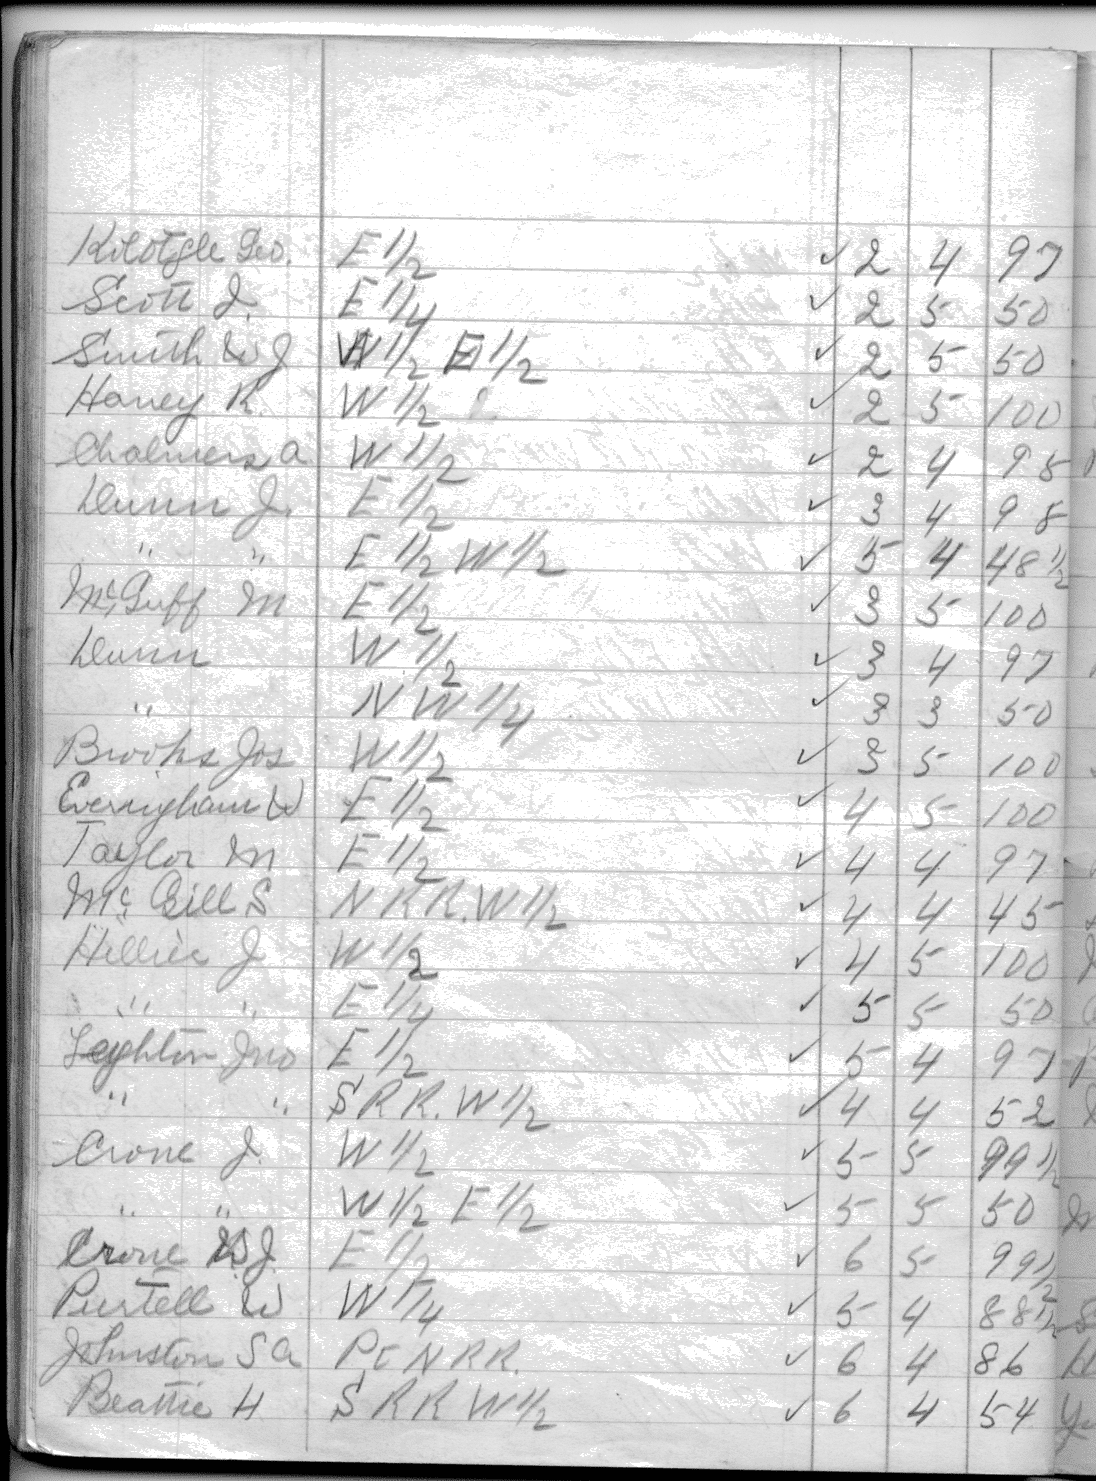 Geo. E 1/2 ✓ 2 4 97
Scott J. E 1/4 ✓ 2 5 50
Smith W J W 1/2 E 1/2 ✓ 2 5 50
Haney R. W 1/2 ✓ 2 5 100
Chalmers A W 1/2 ✓ 2 4 98
Dunn J. E 1/2 ✓ 3 4 98
" " E 1/2 W 1/2 ✓ 5 4 48 1/2
McGuff M E 1/2 ✓ 3 5 100
Dunn W 1/2 ✓ 3 4 97
" N W 1/4 ✓ 3 3 50
Brooks Jos W 1/2 ✓ 3 5 100
Everingham W E 1/2 ✓ 4 5 100
Taylor M E 1/2 ✓ 4 4 97
Mc Gill S N R R. W 1/2 ✓ 4 4 45
Hillier J W 1/2 ✓ 4 5 100
" " E 1/4 ✓ 5 5 50
Leighton Jno E 1/2 ✓ 5 4 97
" " S R R. W 1/2 ✓ 4 4 52
Crone J. W 1/2 ✓ 5 5 99 1/2
" " W 1/2 E 1/2 ✓ 5 5 50
Crone W.J. E 1/2 ✓ 6 5 99 1/2
Purtell W W 1/4 ✓ 5 4 88 1/2
Johnston S A Pt N R R. ✓ 6 4 86
Beattie H S R R W 1/2 ✓ 6 4 54